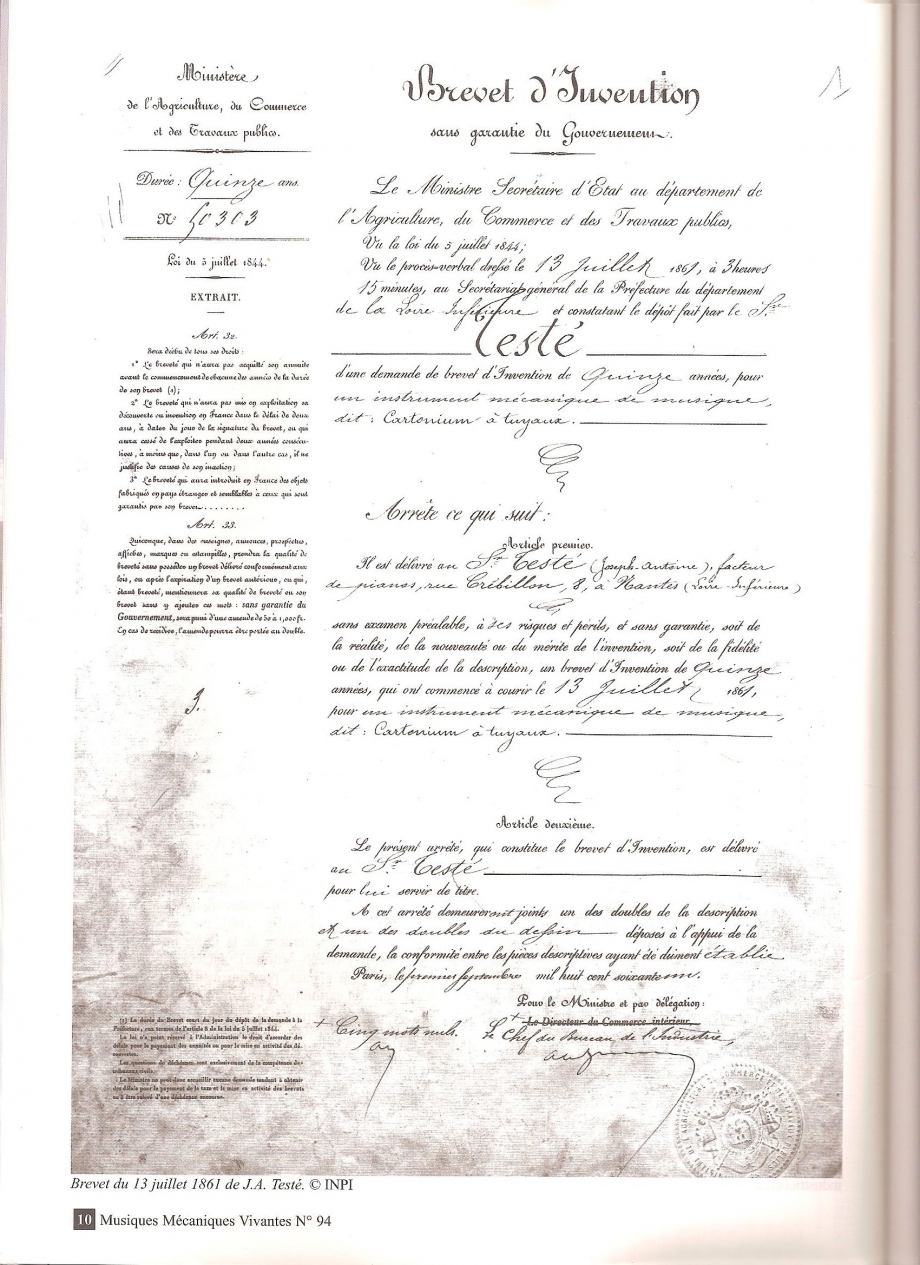 Ministère
de l'Agriculture, du Commerce
et des Travaux publics.
Durée : Quinze ans.
N° 50303
Loi du 5 juillet 1844.
EXTRAIT.
Art. 32.
Sera déchu de tous ses droits :
1° Le breveté qui n'aura pas acquitté son annuité
avant le commencement de chacune des années de la durée
de son brevet (1) ;
2° Le breveté qui n'aura pas mis en exploitation sa
découverte ou invention en France dans le délai de deux
ans, à dater du jour de la signature du brevet, ou qui
aura cessé de l'exploiter pendant deux années consécu-
tives, à moins que, dans l'un ou dans l'autre cas, il ne
justifie des causes de son inaction ;
3° Le breveté qui aura introduit en France des objets
fabriqués en pays étranger et semblables à ceux qui sont
garantis par son brevet........
Art. 33.
Quiconque, dans des enseignes, annonces, prospectus,
affiches, marques ou estampilles, prendra la qualité de
breveté sans posséder un brevet délivré conformément aux
lois, ou après l'expiration d'un brevet antérieur, ou qui,
étant breveté, mentionnera sa qualité de breveté ou son
brevet sans y ajouter ces mots : sans garantie du
Gouvernement, sera puni d'une amende de 50 à 1,000 fr.
En cas de récidive, l'amende pourra être portée au double.
3.
(1) La durée du Brevet court du jour du dépôt de la demande à la
Préfecture, aux termes de l'article 8 de la loi du 5 juillet 1844.
La loi n'a point réservé à l'Administration le droit d'accorder des
délais pour le payement des annuités ou pour la mise en activité des dé-
couvertes.
Les questions de déchéance sont exclusivement de la compétence des
tribunaux civils.
Le Ministre ne peut donc accueillir aucune demande tendant à obtenir
des délais pour le payement de la taxe et la mise en activité des brevets
ou à être relevé d'une déchéance encourue.
1
Brevet d'Invention
sans garantie du Gouvernement.
Le Ministre Secrétaire d'Etat au département de
l'Agriculture, du Commerce et des Travaux publics,
Vu la loi du 5 juillet 1844 ;
Vu le procès-verbal dressé le 13 Juillet 1861, à 3 heures
15 minutes, au Secrétariat général de la Préfecture du département
de la Loire Inférieure et constatant le dépôt fait par le Sr
Testé
d'une demande de brevet d'Invention de Quinze années, pour
un instrument mécanique de musique,
dit : Cartonium à tuyaux.
Arrête ce qui suit :
Article premier.
Il est délivré au Sr Testé (Joseph-Antoine), facteur
de pianos, rue Crébillon, 8, à Nantes (Loire-Inférieure)
sans examen préalable, à ses risques et périls, et sans garantie, soit de
la réalité, de la nouveauté ou du mérite de l'invention, soit de la fidélité
ou de l'exactitude de la description, un brevet d'Invention de Quinze
années, qui ont commencé à courir le 13 Juillet 1861,
pour un instrument mécanique de musique,
dit : Cartonium à tuyaux.
Article deuxième.
Le présent arrêté, qui constitue le brevet d'Invention, est délivré
au Sr Testé
pour lui servir de titre.
A cet arrêté demeureront joints un des doubles de la description
et un des doubles du dessin déposés à l'appui de la
demande, la conformité entre les pièces descriptives ayant été dûment établie
Paris, le premier septembre mil huit cent soixante un.
Pour le Ministre et par délégation :
+ Le Directeur du Commerce intérieur,
+ Cinq mots nuls.
Le Chef du Bureau de l'Industrie,
Brevet du 13 juillet 1861 de J.A. Testé. © INPI
10 Musiques Mécaniques Vivantes N° 94